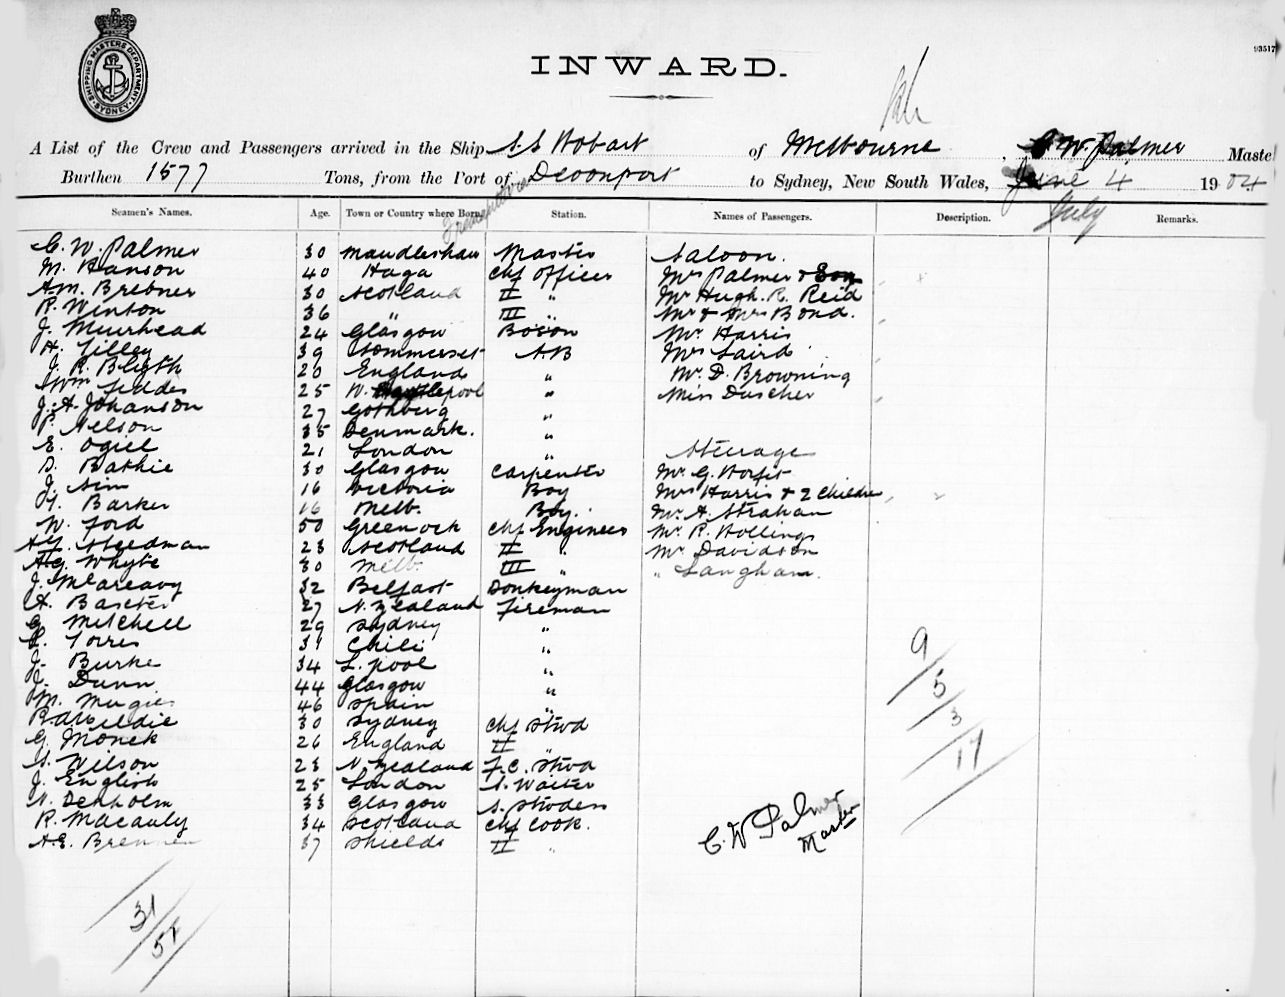 SHIPPING MASTERS DEPARTMENT SYDNEY
93517
INWARD.
A List of the Crew and Passengers arrived in the Ship S.S Hobart of Melbourne, C W. Palmer Maste
Burthen 1577 Tons, from the Port of Devonport to Sydney, New South Wales, June 4 1904
July
Seamen's Names. Age. Town or Country where Born. Station. Names of Passengers. Description. Remarks.
C. W. Palmer 30 Maudleshaw Master Saloon.
M. Hanson 40 Haga Chf Officer Mrs Palmer & Son
A.M. Brebner 30 Scotland II " Mr Hugh. R. Reid
R. Winton 36 " III " Mr & Mrs Bond.
J. Muirhead 24 Glasgow Boson Mr. Harris
H. Tilley 39 Sommerset A.B Mrs Laird
J. R. Bligth 20 England " Mr D. Browning
Wm Geddes 25 W. Hartlepool " Miss Duscher
J. A. Johanson 27 Gothberg "
P. Nelson 35 Denmark. "
E. Ogill 21 London " Steerage
D. Bathie 30 Glasgow Carpenter Mr. G. Horfit
J. Sim 16 Victoria Boy Mrs Harris & 2 Childre
Y. Barker 16 Melb. Boy. Mr. A. Strahan
W. Ford 50 Greenock Chf Engineer Mr. R. Hollings
A.Y. Steedman 23 Scotland II " Mr Davidson
A.G. Whyte 30 Melb. III " " Langham.
J. McAreavy 32 Belfast Donkeyman
A. Baxter 27 N. Zealand Fireman
G. Mitchell 29 Sydney "
L. Torres 31 Chili "
J. Burke 34 L. pool "
J. Dunn 44 Glasgow "
M. Mugies 46 Spain "
Weildie 30 Sydney Chf Stwd
G. Monek 26 England II "
S. Wilson 23 N. Zealand F.C. Stwd
J. English 25 London S. Waiter
N. Denholm 33 Glasgow S. Stwdess
R. Macauly 34 Scotland Chf Cook.
A.E. Brennen 37 Shields II "
9/5/3/17
C. W Palmer
Master
31/51